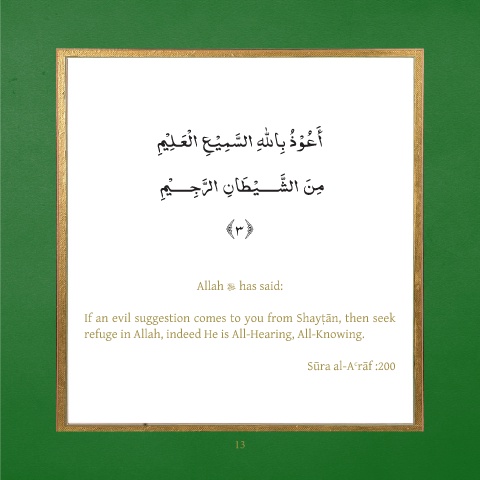 أَعُوْذُ بِاللهِ السَّمِيْعِ الْعَلِيْمِ
مِنَ الشَّـــيْطَانِ الرَّجِـــيْمِ
﴿٣﴾
Allah ﷻ has said:
If an evil suggestion comes to you from Shayṭān, then seek
refuge in Allah, indeed He is All-Hearing, All-Knowing.
Sūra al-Aʿrāf :200
13